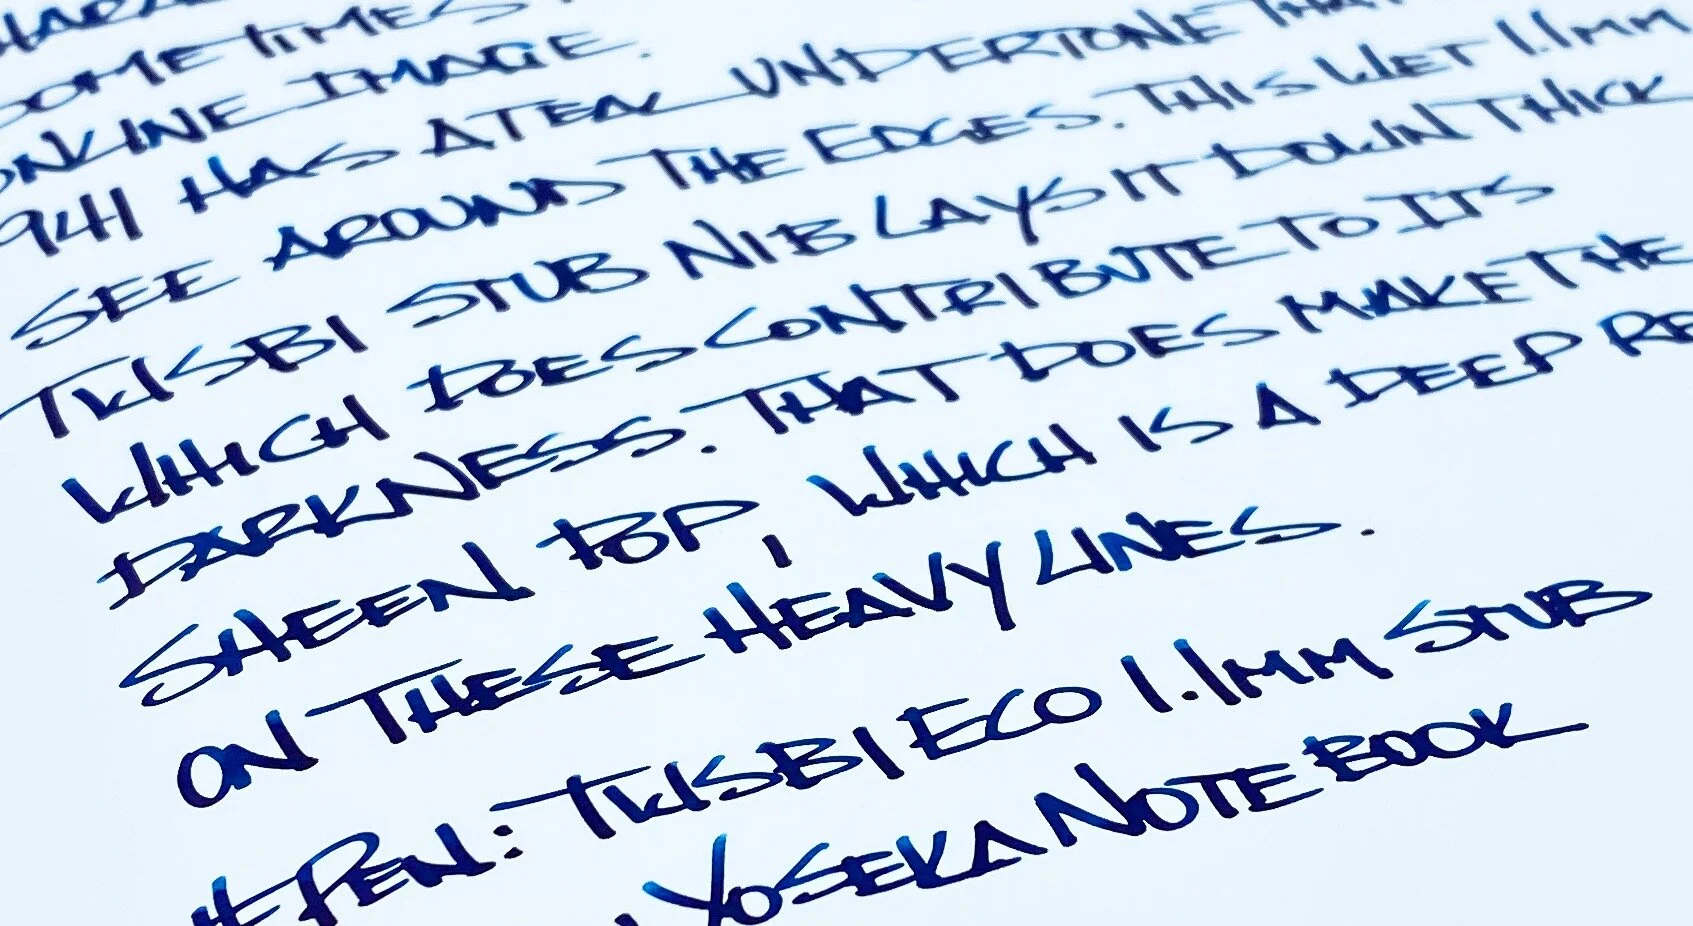 SOMETIMES
ONLINE IMAGE.
941 HAS A TEAL UNDERTONE THAT
SEE AROUND THE EDGES. THIS WET 1.1MM
TWSBI STUB NIB LAYS IT DOWN THICK
WHICH DOES CONTRIBUTE TO ITS
DARKNESS. THAT DOES MAKE THE
SHEEN POP, WHICH IS A DEEP RE
ON THESE HEAVY LINES.
HE PEN: TWSBI ECO 1.1MM STUB
YOSEKA NOTEBOOK